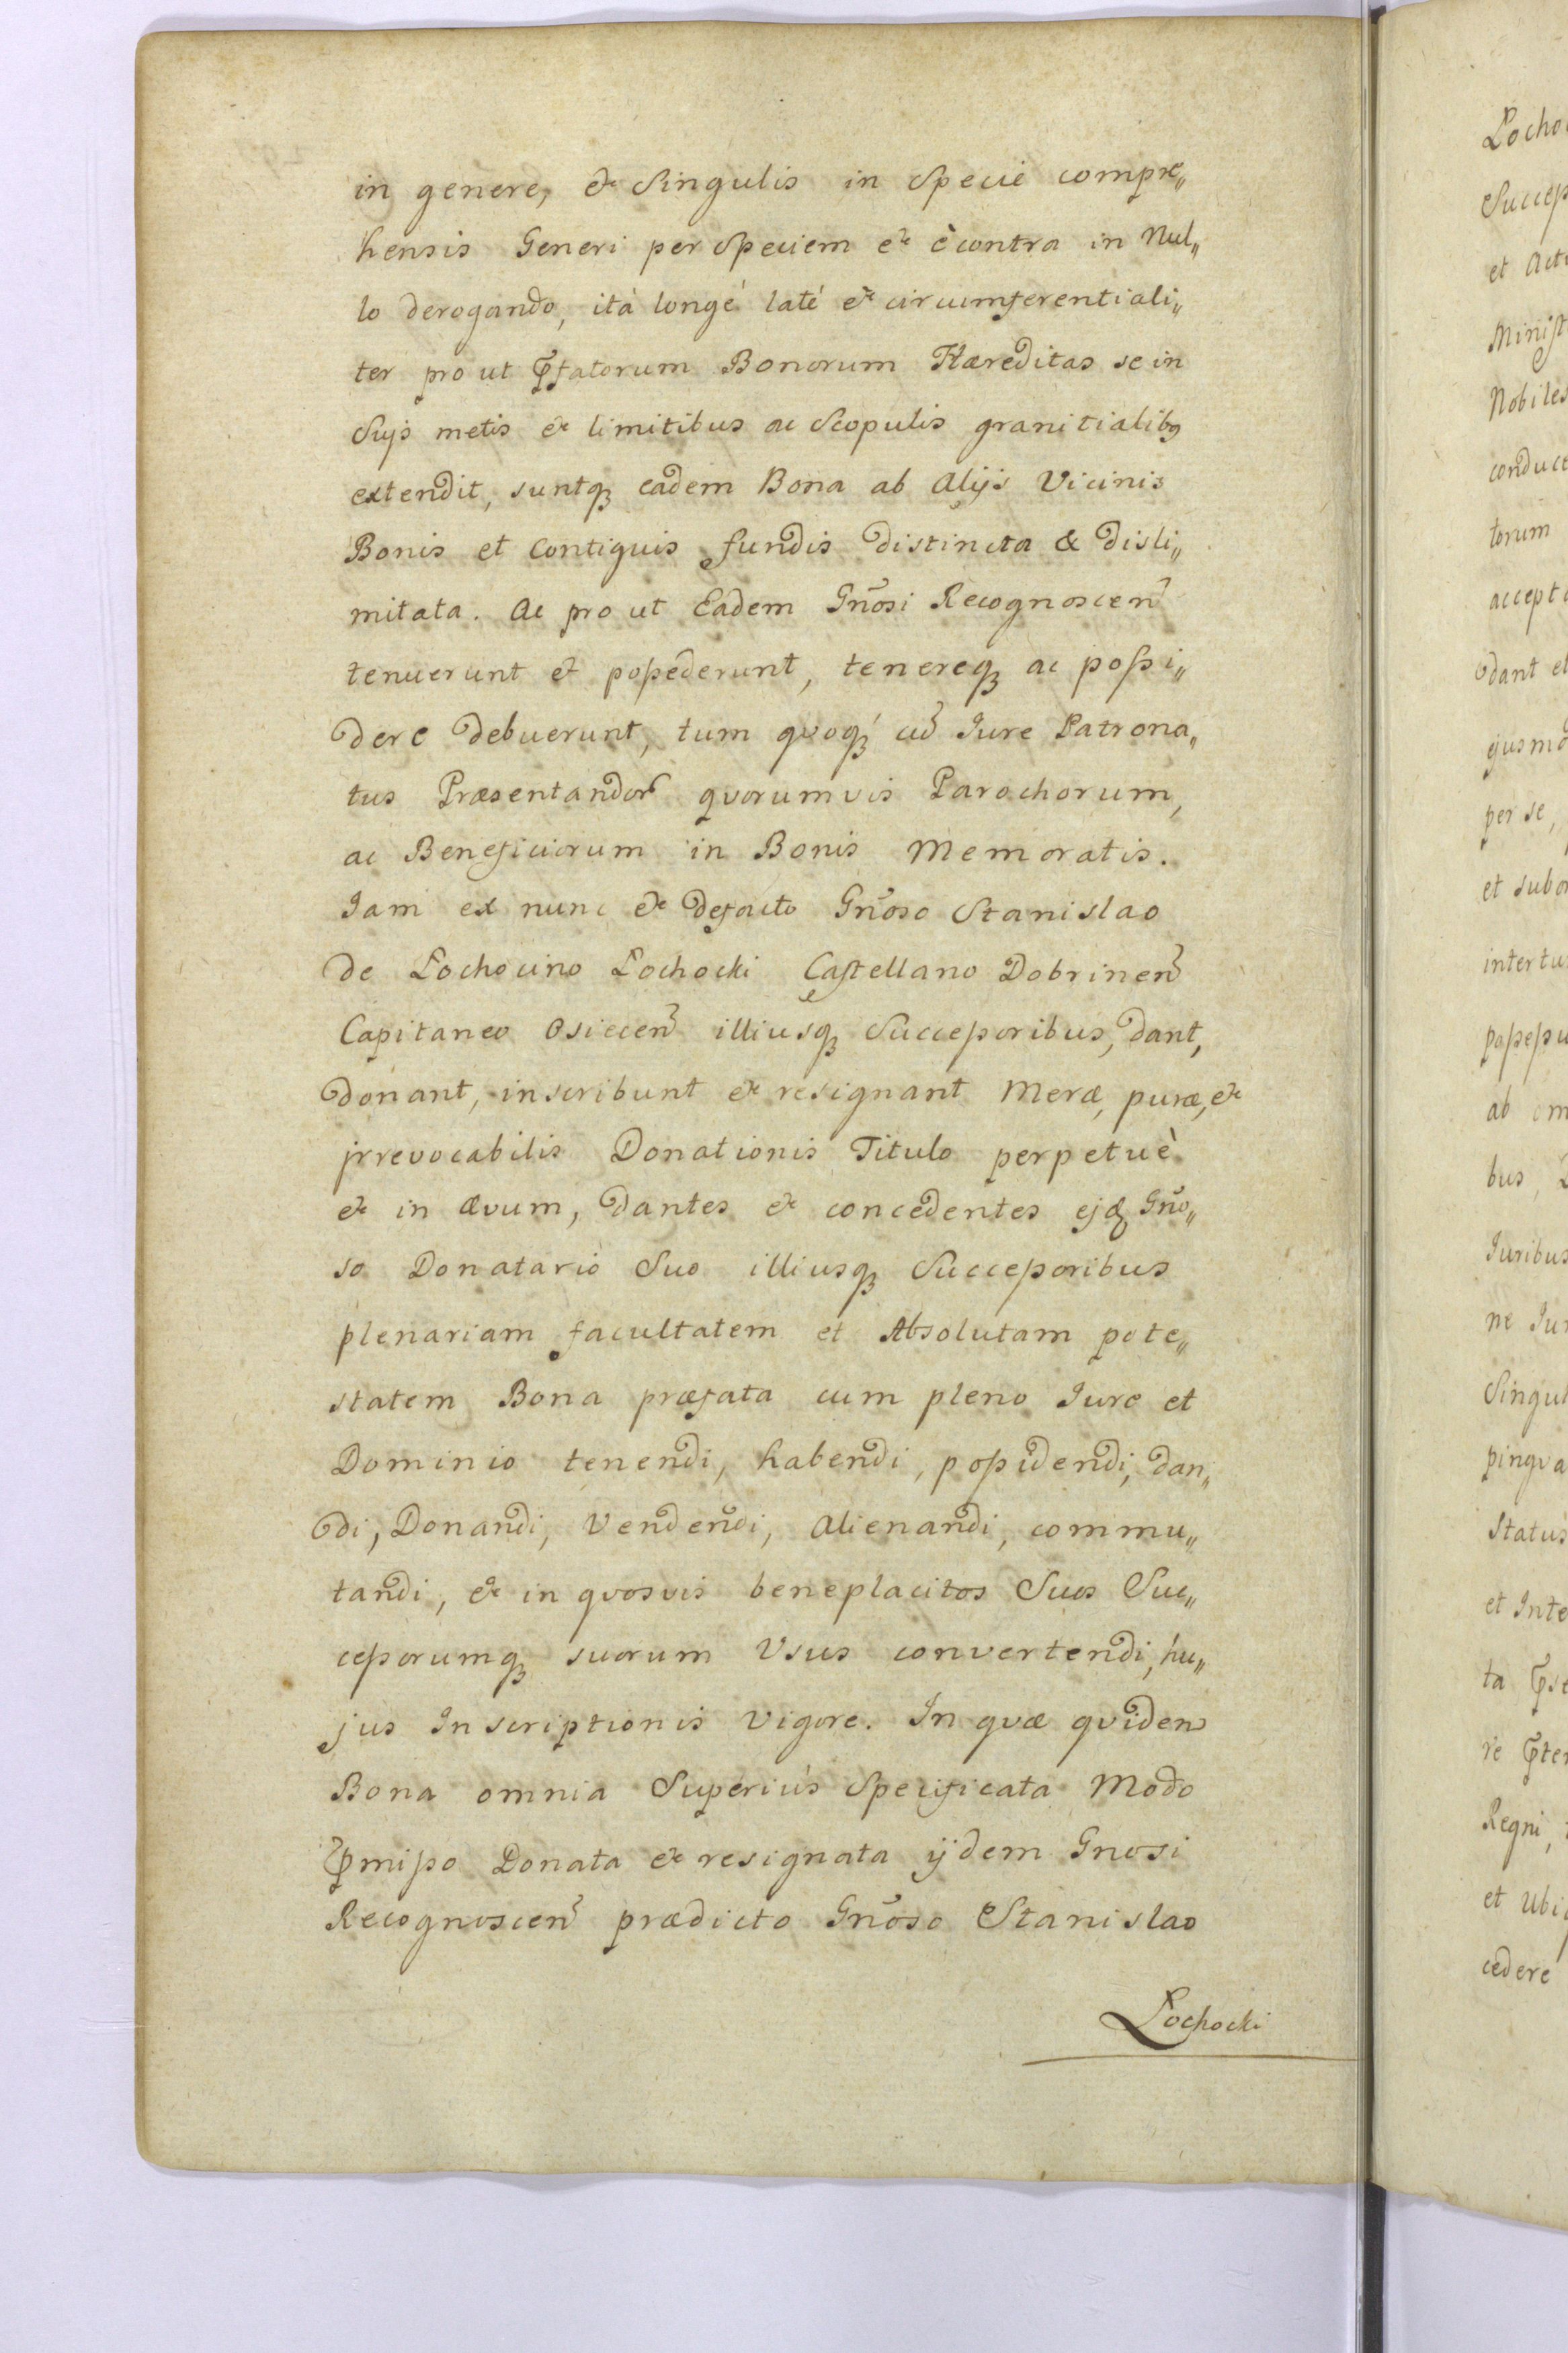 in genere, & Singulis in Specie compre„
hensis Generi per Speciem & è contra in Nul„
lo derogando, ità longé laté & circumferentiali„
ter pro ut Pfatorum Bonorum Hæreditas se in
Sujs metis & limitibus ac Scopulis granitialibꝰ
extendit, suntqꝫ eadem Bona ab Alijs Vicinis
Bonis et Contiguis fundis distincta & disli„
mitata. Ac pro ut Eadem Gñosi Recognoscen̄
tenuerunt & poßederunt, tenereqꝫ ac poßi„
dere debuerunt, tum quoqꝫ cū Iure Patrona„
tus Præsentandor̄ quorumvis Parochorum,
ac Beneficiorum in Bonis Memoratis.
Iam ex nunc & defacto Gñoso Stanislao
de Łochocino Łochocki Castellano Dobrinen̄
Capitaneo Osiecen̄ illiusqꝫ Succeßoribus, dant,
donant, inscribunt & resignant Meræ, puræ, &
jrrevocabilis Donationis Titulo perpetuè
& in ævum, dantes & concedentes ejd Gño„
so Donatario Suo illiusqꝫ Succeßoribus
plenariam facultatem et Absolutam pote„
statem Bona præfata cum pleno Iure et
Dominio tenendi, habendi, poßidendi, dan„
di, Donandi, Vendendi, Alienandi, commu„
tandi, & in quosvis beneplacitos Suos Suc„
ceßorumqꝫ suorum Usus convertendi, hu„
jus Inscriptionis vigore. In quæ quidem
Bona omnia Superiùs Specificata Modo
Pmißo Donata & resignata ijdem Gnosi
Recognoscen̄ prædicto Gñoso Stanislao
Łochocki
Łocho
Succeß
et Act
Minist
Nobiles
conduct
torum
accept
dant et
ejusmo
per se,
et subo
intertu
poßeßu
ab om
bus,
Iuribus
ne Iur
Singul
pinqva
Status
et Inte
ta Pst
re Pter
Regni,
et Ubi
cedere